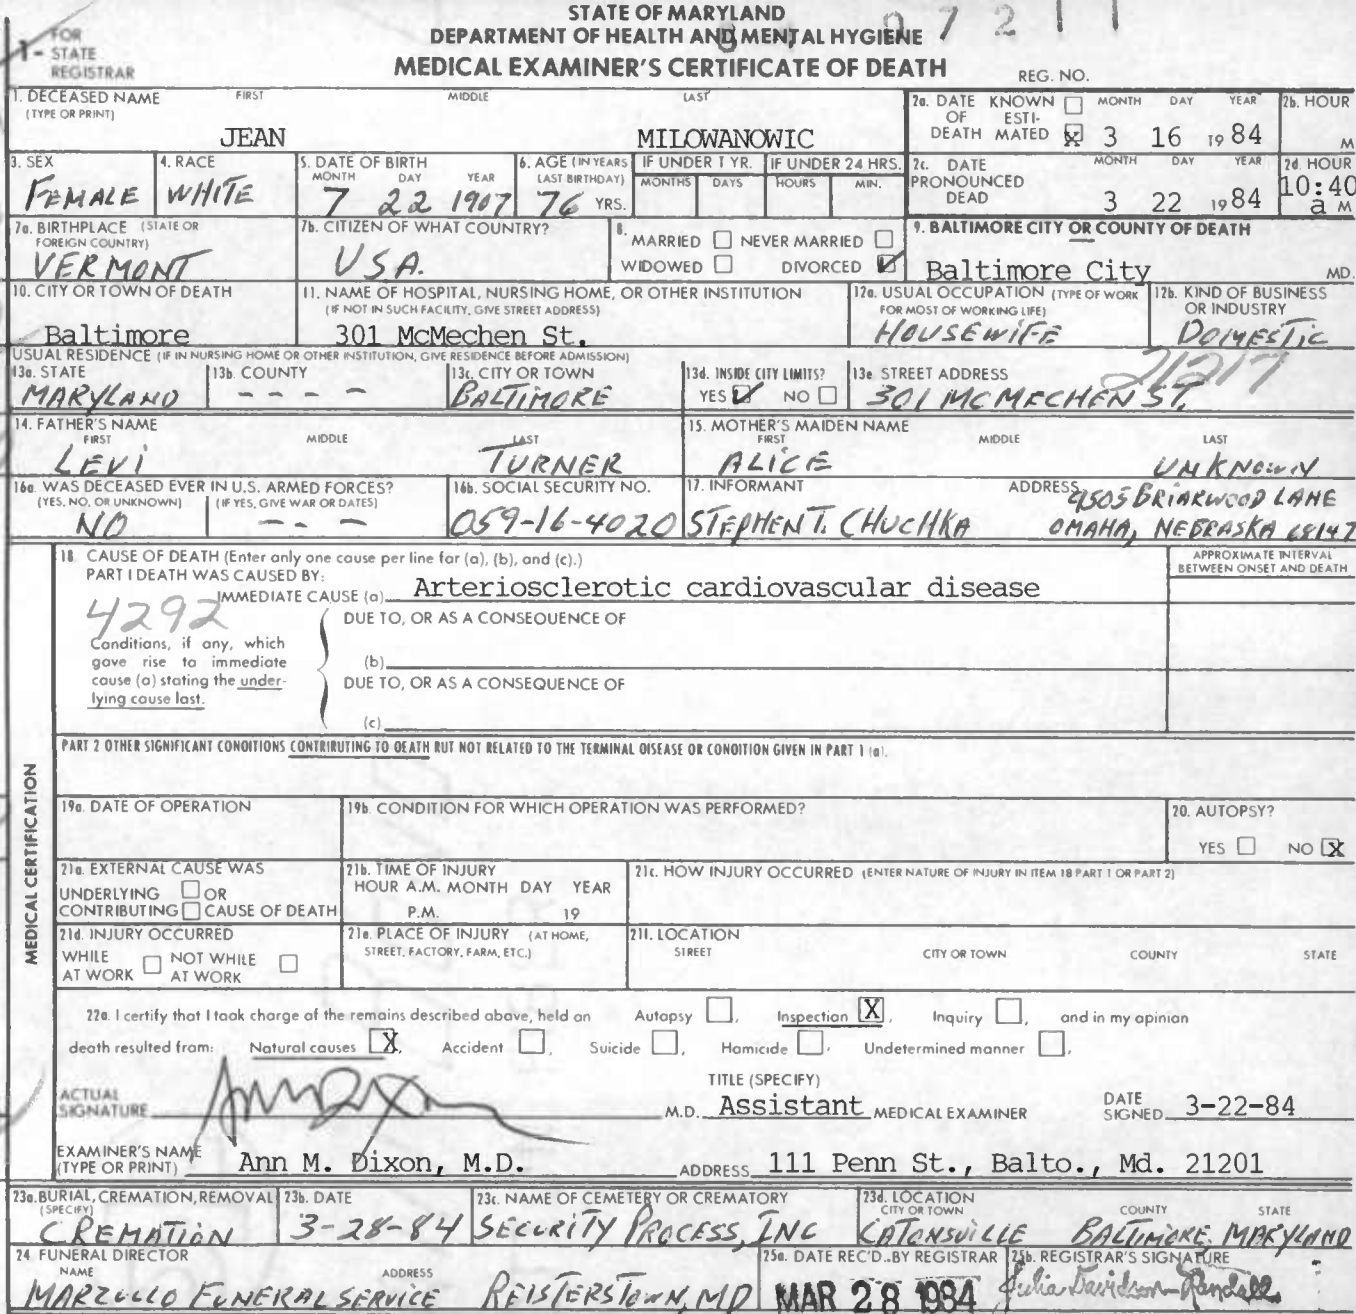 STATE OF MARYLAND
DEPARTMENT OF HEALTH AND MENTAL HYGIENE
MEDICAL EXAMINER'S CERTIFICATE OF DEATH
7 2 1 1
1 - FOR STATE REGISTRAR
REG. NO.
1. DECEASED NAME (TYPE OR PRINT) FIRST MIDDLE LAST
JEAN MILOWANOWIC
2a. DATE OF DEATH KNOWN ☐ ESTIMATED ☒ MONTH DAY YEAR 3 16 1984
2b. HOUR M
3. SEX FEMALE
4. RACE WHITE
5. DATE OF BIRTH MONTH DAY YEAR 7 22 1907
6. AGE (IN YEARS LAST BIRTHDAY) 76 YRS.
IF UNDER 1 YR. MONTHS DAYS
IF UNDER 24 HRS. HOURS MIN.
2c. DATE PRONOUNCED DEAD MONTH DAY YEAR 3 22 1984
2d. HOUR 10:40 a M
7a. BIRTHPLACE (STATE OR FOREIGN COUNTRY) VERMONT
7b. CITIZEN OF WHAT COUNTRY? USA.
8. MARRIED ☐ NEVER MARRIED ☐ WIDOWED ☐ DIVORCED ☑
9. BALTIMORE CITY OR COUNTY OF DEATH Baltimore City MD.
10. CITY OR TOWN OF DEATH Baltimore
11. NAME OF HOSPITAL, NURSING HOME, OR OTHER INSTITUTION (IF NOT IN SUCH FACILITY, GIVE STREET ADDRESS) 301 McMechen St.
12a. USUAL OCCUPATION (TYPE OF WORK FOR MOST OF WORKING LIFE) HOUSEWIFE
12b. KIND OF BUSINESS OR INDUSTRY DOMESTIC
USUAL RESIDENCE (IF IN NURSING HOME OR OTHER INSTITUTION, GIVE RESIDENCE BEFORE ADMISSION)
13a. STATE MARYLAND
13b. COUNTY - - - -
13c. CITY OR TOWN BALTIMORE
13d. INSIDE CITY LIMITS? YES ☑ NO ☐
13e STREET ADDRESS 301 MCMECHEN ST. 21217
14. FATHER'S NAME FIRST MIDDLE LAST
LEVI TURNER
15. MOTHER'S MAIDEN NAME FIRST MIDDLE LAST
ALICE UNKNOWN
16a. WAS DECEASED EVER IN U.S. ARMED FORCES? (YES, NO, OR UNKNOWN) (IF YES, GIVE WAR OR DATES)
NO - - -
16b. SOCIAL SECURITY NO. 059-16-4020
17. INFORMANT STEPHEN T. CHUCHKA
ADDRESS 9505 BRIARWOOD LANE
OMAHA, NEBRASKA 68147
MEDICAL CERTIFICATION
18 CAUSE OF DEATH (Enter only one cause per line for (a), (b), and (c).)
APPROXIMATE INTERVAL BETWEEN ONSET AND DEATH
PART I DEATH WAS CAUSED BY:
IMMEDIATE CAUSE (a) Arteriosclerotic cardiovascular disease
4292
DUE TO, OR AS A CONSEQUENCE OF
Conditions, if any, which gave rise to immediate cause (a) stating the underlying cause last.
(b)
DUE TO, OR AS A CONSEQUENCE OF
(c)
PART 2 OTHER SIGNIFICANT CONDITIONS CONTRIBUTING TO DEATH BUT NOT RELATED TO THE TERMINAL DISEASE OR CONDITION GIVEN IN PART 1 (a).
19a. DATE OF OPERATION
19b. CONDITION FOR WHICH OPERATION WAS PERFORMED?
20. AUTOPSY? YES ☐ NO ☒
21a. EXTERNAL CAUSE WAS UNDERLYING ☐ OR CONTRIBUTING ☐ CAUSE OF DEATH
21b. TIME OF INJURY HOUR A.M. MONTH DAY YEAR P.M. 19
21c. HOW INJURY OCCURRED (ENTER NATURE OF INJURY IN ITEM 18 PART 1 OR PART 2)
21d. INJURY OCCURRED WHILE AT WORK ☐ NOT WHILE AT WORK ☐
21e. PLACE OF INJURY (AT HOME, STREET, FACTORY, FARM, ETC.)
21f. LOCATION STREET CITY OR TOWN COUNTY STATE
22a. I certify that I took charge of the remains described above, held an Autopsy ☐, Inspection ☒, Inquiry ☐, and in my opinion
death resulted from: Natural causes ☒, Accident ☐, Suicide ☐, Homicide ☐, Undetermined manner ☐,
ACTUAL SIGNATURE M.D.
TITLE (SPECIFY) Assistant MEDICAL EXAMINER
DATE SIGNED 3-22-84
EXAMINER'S NAME (TYPE OR PRINT) Ann M. Dixon, M.D.
ADDRESS 111 Penn St., Balto., Md. 21201
23a. BURIAL, CREMATION, REMOVAL (SPECIFY) CREMATION
23b. DATE 3-28-84
23c. NAME OF CEMETERY OR CREMATORY SECURITY PROCESS, INC
23d. LOCATION CITY OR TOWN COUNTY STATE
CATONSVILLE BALTIMORE MARYLAND
24 FUNERAL DIRECTOR NAME ADDRESS
MARZULLO FUNERAL SERVICE REISTERSTOWN, MD
25a. DATE REC'D. BY REGISTRAR MAR 28 1984
25b. REGISTRAR'S SIGNATURE Julia Davidson-Randall